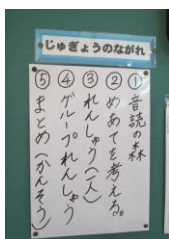 じゅぎょうのながれ
①音読の森
②めあてを考える。
③れんしゅう(一人)
④グループれんしゅう
⑤まとめ(かんそう)